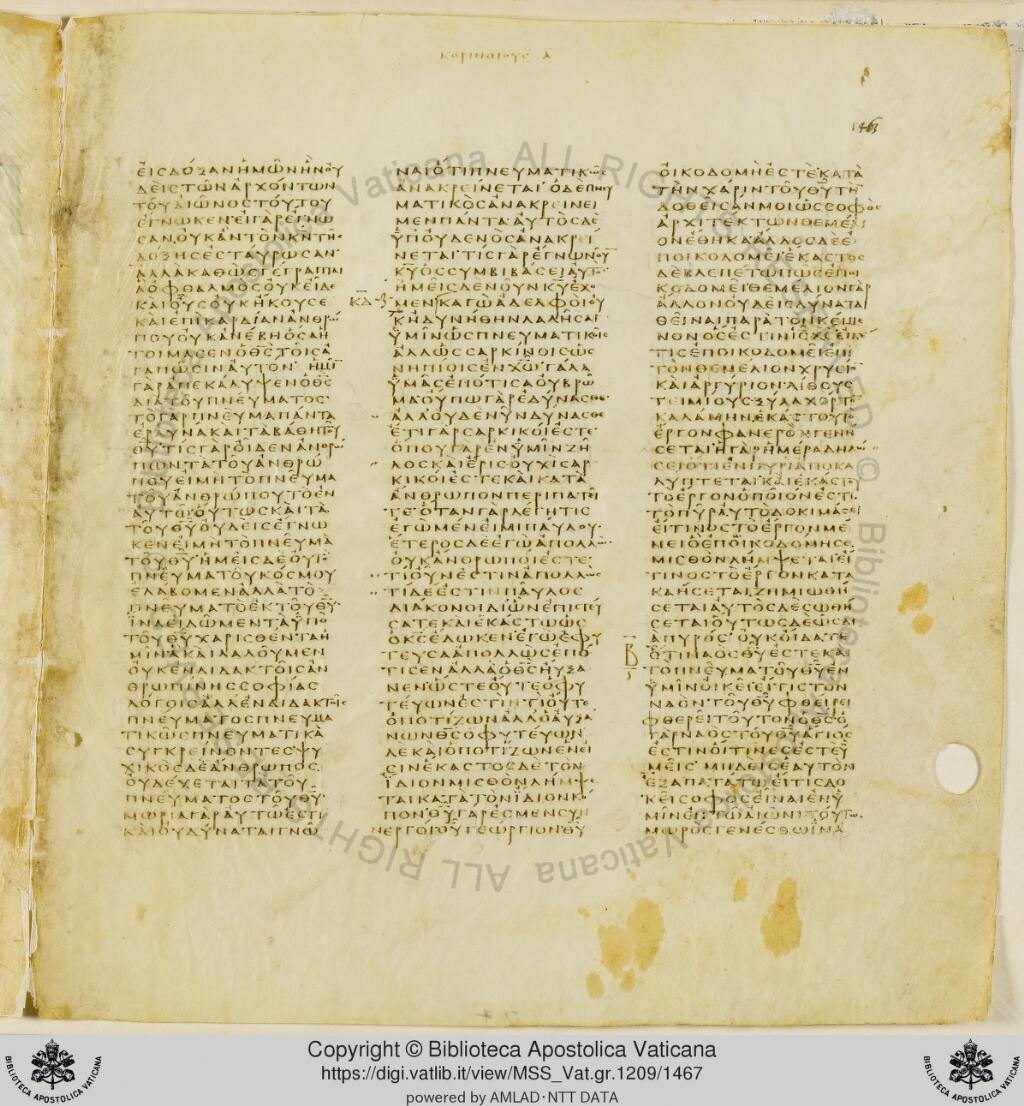 ΚΟΡΙΝΘΙΟΥΣ Α
1463
ΕΙΣΔΟΞΑΝΗΜΩΝΗΝΟΥ
ΔΕΙΣΤΩΝΑΡΧΟΝΤΩΝ
ΤΟΥΑΙΩΝΟΣΤΟΥΤΟΥ
ΕΓΝΩΚΕΝΕΙΓΑΡΕΓΝΩ
ΣΑΝΟΥΚΑΝΤΟΝΚΝΤΗΣ
ΔΟΞΗΣΕΣΤΑΥΡΩΣΑΝ
ΑΛΛΑΚΑΘΩΣΓΕΓΡΑΠΤΑΙ
ΑΟΦΘΑΛΜΟΣΟΥΚΕΙΔΕ
ΚΑΙΟΥΣΟΥΚΗΚΟΥΣΕ
ΚΑΙΕΠΙΚΑΡΔΙΑΝΑΝΘΡΩ
ΠΟΥΟΥΚΑΝΕΒΗΟΣΑΗ
ΤΟΙΜΑΣΕΝΟΘΣΤΟΙΣΑ
ΓΑΠΩΣΙΝΑΥΤΟΝ ΗΜΙΝ
ΓΑΡΑΠΕΚΑΛΥΨΕΝΟΘΣ
ΔΙΑΤΟΥΠΝΕΥΜΑΤΟΣ
ΤΟΓΑΡΠΝΕΥΜΑΠΑΝΤΑ
ΕΡΑΥΝΑΚΑΙΤΑΒΑΘΗΤΟΥ
ΘΥΤΙΣΓΑΡΟΙΔΕΝΑΝΘΡΩ
ΠΩΝΤΑΤΟΥΑΝΘΡΩ
ΠΟΥΕΙΜΗΤΟΠΝΕΥΜΑ
ΤΟΥΑΝΘΡΩΠΟΥΤΟΕΝ
ΑΥΤΩΟΥΤΩΣΚΑΙΤΑ
ΤΟΥΘΥΟΥΔΕΙΣΕΓΝΩ
ΚΕΝΕΙΜΗΤΟΠΝΕΥΜΑ
ΤΟΥΘΥΗΜΕΙΣΔΕΟΥΤΟ
ΠΝΕΥΜΑΤΟΥΚΟΣΜΟΥ
ΕΛΑΒΟΜΕΝΑΛΛΑΤΟ
ΠΝΕΥΜΑΤΟΕΚΤΟΥΘΥ
ΙΝΑΕΙΔΩΜΕΝΤΑΥΠΟ
ΤΟΥΘΥΧΑΡΙΣΘΕΝΤΑΗ
ΜΙΝΑΚΑΙΛΑΛΟΥΜΕΝ
ΟΥΚΕΝΔΙΔΑΚΤΟΙΣΑΝ
ΘΡΩΠΙΝΗΣΣΟΦΙΑΣ
ΛΟΓΟΙΣΑΛΛΕΝΔΙΔΑΚΤΟΙΣ
ΠΝΕΥΜΑΤΟΣΠΝΕΥΜΑ
ΤΙΚΩΣΠΝΕΥΜΑΤΙΚΑ
ΣΥΓΚΡΕΙΝΟΝΤΕΣΨΥ
ΧΙΚΟΣΔΕΑΝΘΡΩΠΟΣ
ΟΥΔΕΧΕΤΑΙΤΑΤΟΥ
ΠΝΕΥΜΑΤΟΣΤΟΥΘΥ
ΜΩΡΙΑΓΑΡΑΥΤΩΕΣΤΙ
ΚΑΙΟΥΔΥΝΑΤΑΙΓΝΩ
ΝΑΙΟΤΙΠΝΕΥΜΑΤΙΚΩΣ
ΑΝΑΚΡΕΙΝΕΤΑΙΟΔΕΠΝΕΥ
ΜΑΤΙΚΟΣΑΝΑΚΡΕΙΝΕΙ
ΜΕΝΠΑΝΤΑΑΥΤΟΣΔΕ
ΥΠΟΥΔΕΝΟΣΑΝΑΚΡΕΙ
ΝΕΤΑΙΤΙΣΓΑΡΕΓΝΩΝΟΥ
ΚΥΟΣΣΥΜΒΙΒΑΣΕΙΑΥΤΟ
ΗΜΕΙΣΔΕΝΟΥΝΚΥΕΧΟ
ΜΕΝΚΑΓΩΑΔΕΛΦΟΙΟΥ
ΚΗΔΥΝΗΘΗΝΛΑΛΗΣΑΙ
ΥΜΙΝΩΣΠΝΕΥΜΑΤΙΚΟΙΣ
ΑΛΛΩΣΣΑΡΚΙΝΟΙΣΩΣ
ΝΗΠΙΟΙΣΕΝΧΩΓΑΛΑ
ΥΜΑΣΕΠΟΤΙΣΑΟΥΒΡΩ
ΜΑΟΥΠΩΓΑΡΕΔΥΝΑΣΘΕ
ΑΛΛΟΥΔΕΝΥΝΔΥΝΑΣΘΕ
ΕΤΙΓΑΡΣΑΡΚΙΚΟΙΕΣΤΕ
ΟΠΟΥΓΑΡΕΝΥΜΙΝΖΗ
ΛΟΣΚΑΙΕΡΙΣΟΥΧΙΣΑΡ
ΚΙΚΟΙΕΣΤΕΚΑΙΚΑΤΑ
ΑΝΘΡΩΠΟΝΠΕΡΙΠΑΤΕΙ
ΤΕΟΤΑΝΓΑΡΛΕΓΗΤΙΣ
ΕΓΩΜΕΝΕΙΜΙΠΑΥΛΟΥ
ΕΤΕΡΟΣΔΕΕΓΩΑΠΟΛΛΩ
ΟΥΚΑΝΘΡΩΠΟΙΕΣΤΕ
ΤΙΟΥΝΕΣΤΙΝΑΠΟΛΛΩΣ
ΤΙΔΕΕΣΤΙΝΠΑΥΛΟΣ
ΔΙΑΚΟΝΟΙΔΙΩΝΕΠΙΣΤΕΥ
ΣΑΤΕΚΑΙΕΚΑΣΤΩΩΣ
ΟΚΣΕΔΩΚΕΝΕΓΩΕΦΥ
ΤΕΥΣΑΑΠΟΛΛΩΣΕΠΟ
ΤΙΣΕΝΑΛΛΑΟΘΣΗΥΞΑ
ΝΕΝΩΣΤΕΟΥΤΕΟΦΥ
ΤΕΥΩΝΕΣΤΙΝΤΙΟΥΤΕ
ΟΠΟΤΙΖΩΝΑΛΛΟΑΥΞΑ
ΝΩΝΘΣΟΦΥΤΕΥΩΝ
ΔΕΚΑΙΟΠΟΤΙΖΩΝΕΝΕΙ
ΣΙΝΕΚΑΣΤΟΣΔΕΤΟΝ
ΙΔΙΟΝΜΙΣΘΟΝΛΗΜΨΕ
ΤΑΙΚΑΤΑΤΟΝΙΔΙΟΝΚΟ
ΠΟΝΘΥΓΑΡΕΣΜΕΝΣΥΝ
ΕΡΓΟΙΘΥΓΕΩΡΓΙΟΝΘΥ
ΟΙΚΟΔΟΜΗΕΣΤΕΚΑΤΑ
ΤΗΝΧΑΡΙΝΤΟΥΘΥΤΗ
ΔΟΘΕΙΣΑΝΜΟΙΩΣΣΟΦΟΣ
ΑΡΧΙΤΕΚΤΩΝΘΕΜΕΛΙ
ΟΝΕΘΗΚΑΑΛΛΟΣΔΕΕ
ΠΟΙΚΟΔΟΜΕΙΕΚΑΣΤΟΣ
ΔΕΒΛΕΠΕΤΩΠΩΣΕΠΟΙ
ΚΟΔΟΜΕΙΘΕΜΕΛΙΟΝΓΑΡ
ΑΛΛΟΝΟΥΔΕΙΣΔΥΝΑΤΑΙ
ΘΕΙΝΑΙΠΑΡΑΤΟΝΚΕΙΜΕ
ΝΟΝΟΣΕΣΤΙΝΙΣΧΣΕΙΔΕ
ΤΙΣΕΠΟΙΚΟΔΟΜΕΙΕΠΙ
ΤΟΝΘΕΜΕΛΙΟΝΧΡΥΣΙΟ
ΚΑΙΑΡΓΥΡΙΟΝΛΙΘΟΥΣ
ΤΕΙΜΙΟΥΣΞΥΛΑΧΟΡΤΟ
ΚΑΛΑΜΗΝΕΚΑΣΤΟΥΤΟ
ΕΡΓΟΝΦΑΝΕΡΟΝΓΕΝΗ
ΣΕΤΑΙΗΓΑΡΗΜΕΡΑΔΗΛΩ
ΣΕΙΟΤΙΕΝΠΥΡΙΑΠΟΚΑ
ΛΥΠΤΕΤΑΙΚΑΙΕΚΑΣΤΟΥ
ΤΟΕΡΓΟΝΟΠΟΙΟΝΕΣΤΙ
ΤΟΠΥΡΑΥΤΟΔΟΚΙΜΑΣΕΙ
ΕΙΤΙΝΟΣΤΟΕΡΓΟΝΜΕ
ΝΕΙΟΕΠΟΙΚΟΔΟΜΗΣΕ
ΜΙΣΘΟΝΛΗΜΨΕΤΑΙΕΙ
ΤΙΝΟΣΤΟΕΡΓΟΝΚΑΤΑ
ΚΑΗΣΕΤΑΙΖΗΜΙΩΘΗ
ΣΕΤΑΙΑΥΤΟΣΔΕΣΩΘΗ
ΣΕΤΑΙΟΥΤΩΣΔΕΩΣΔΙ
ΑΠΥΡΟΣΟΥΚΟΙΔΑΤΕ
ΟΤΙΝΑΟΣΘΥΕΣΤΕΚΑΙ
ΤΟΠΝΕΥΜΑΤΟΥΘΥΕΝ
ΥΜΙΝΟΙΚΕΙΕΙΤΙΣΤΟΝ
ΝΑΟΝΤΟΥΘΥΦΘΕΙΡΕΙ
ΦΘΕΡΕΙΤΟΥΤΟΝΟΘΣΟ
ΓΑΡΝΑΟΣΤΟΥΘΥΑΓΙΟΣ
ΕΣΤΙΝΟΙΤΙΝΕΣΕΣΤΕΥ
ΜΕΙΣΜΗΔΕΙΣΕΑΥΤΟΝ
ΕΞΑΠΑΤΑΤΩΕΙΤΙΣΔΟ
ΚΕΙΣΟΦΟΣΕΙΝΑΙΕΝΥ
ΜΙΝΕΝΤΩΑΙΩΝΙΤΟΥΤΩ
ΜΩΡΟΣΓΕΝΕΣΘΩΙΝΑ
Copyright © Biblioteca Apostolica Vaticana
https://digi.vatlib.it/view/MSS_Vat.gr.1209/1467
powered by AMLAD·NTT DATA